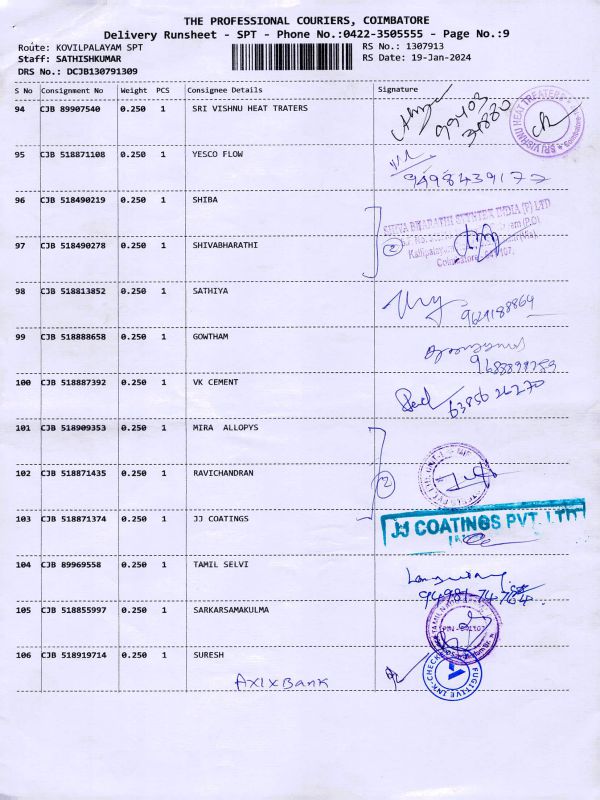 THE PROFESSIONAL COURIERS, COIMBATORE
Delivery Runsheet - SPT - Phone No.:0422-3505555 - Page No.:9
Route: KOVILPALAYAM SPT
RS No.: 1307913
Staff: SATHISHKUMAR
RS Date: 19-Jan-2024
DRS No.: DCJB130791309
S No Consignment No Weight PCS Consignee Details Signature
94 CJB 89907540 0.250 1 SRI VISHNU HEAT TRATERS
99403
31880
SRI VISHNU HEAT TREATERS Coimbatore
95 CJB 518871108 0.250 1 YESCO FLOW
9498439177
96 CJB 518490219 0.250 1 SHIBA
SHIVA BHARATHI SPINTEX INDIA (P) LTD
Coimbatore - 641 107.
2
97 CJB 518490278 0.250 1 SHIVABHARATHI
98 CJB 518813852 0.250 1 SATHIYA
9629188864
99 CJB 518888658 0.250 1 GOWTHAM
100 CJB 518887392 0.250 1 VK CEMENT
63856 26270
101 CJB 518909353 0.250 1 MIRA ALLOPYS
102 CJB 518871435 0.250 1 RAVICHANDRAN
2
103 CJB 518871374 0.250 1 JJ COATINGS
JJ COATINGS PVT. LTD
104 CJB 89969558 0.250 1 TAMIL SELVI
94981-74764
105 CJB 518855997 0.250 1 SARKARSAMAKULMA
106 CJB 518919714 0.250 1 SURESH
AXIXBANK
FUGITIVE INK-CHECK